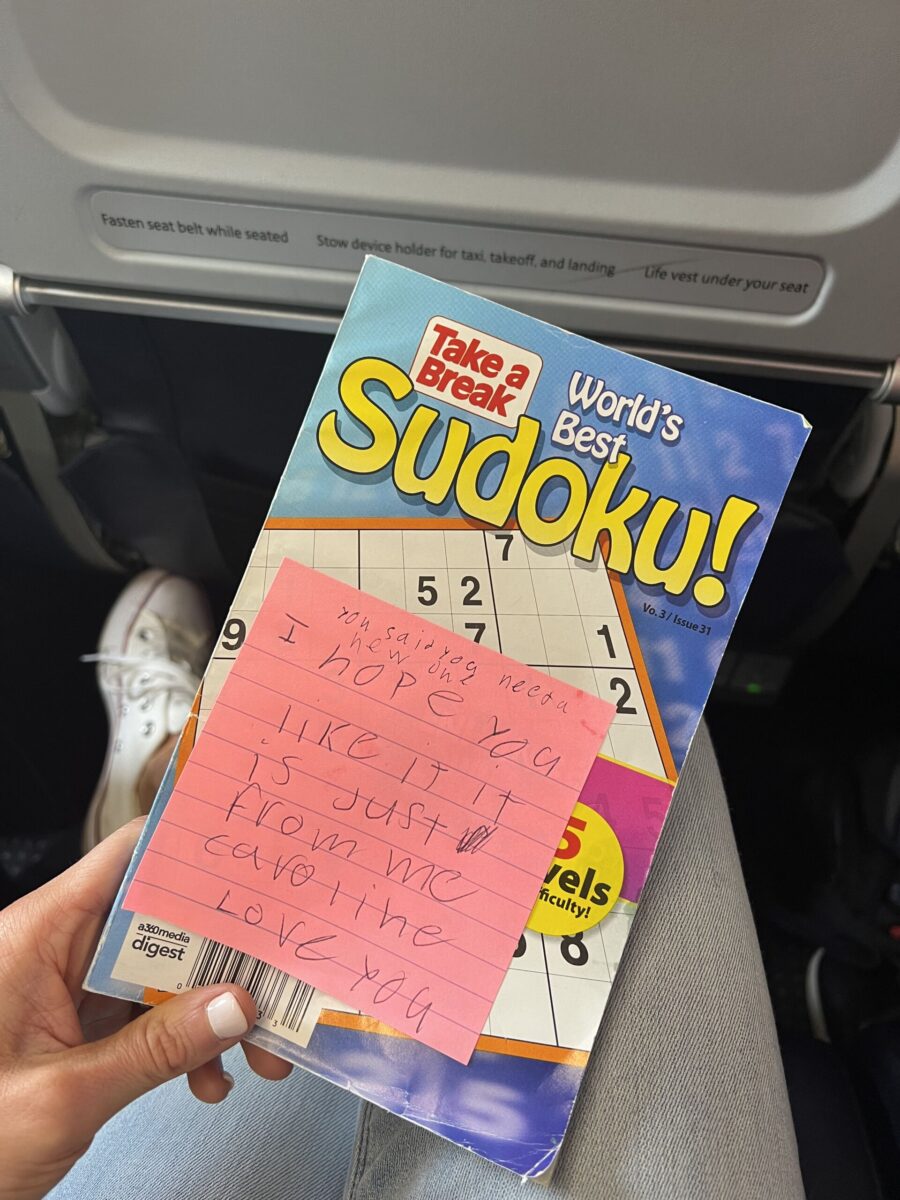 Fasten seat belt while seated
Stow device holder for taxi, takeoff, and landing
Life vest under your seat
Take a
Break
World's
Best
Sudoku!
Vo.3 / Issue 31
7
5 2
9
7
1
2
you said you need a
new one
I hope you
like it it
is just
from me
caroline
Love you
5
vels
ficulty!
8
a360media
digest